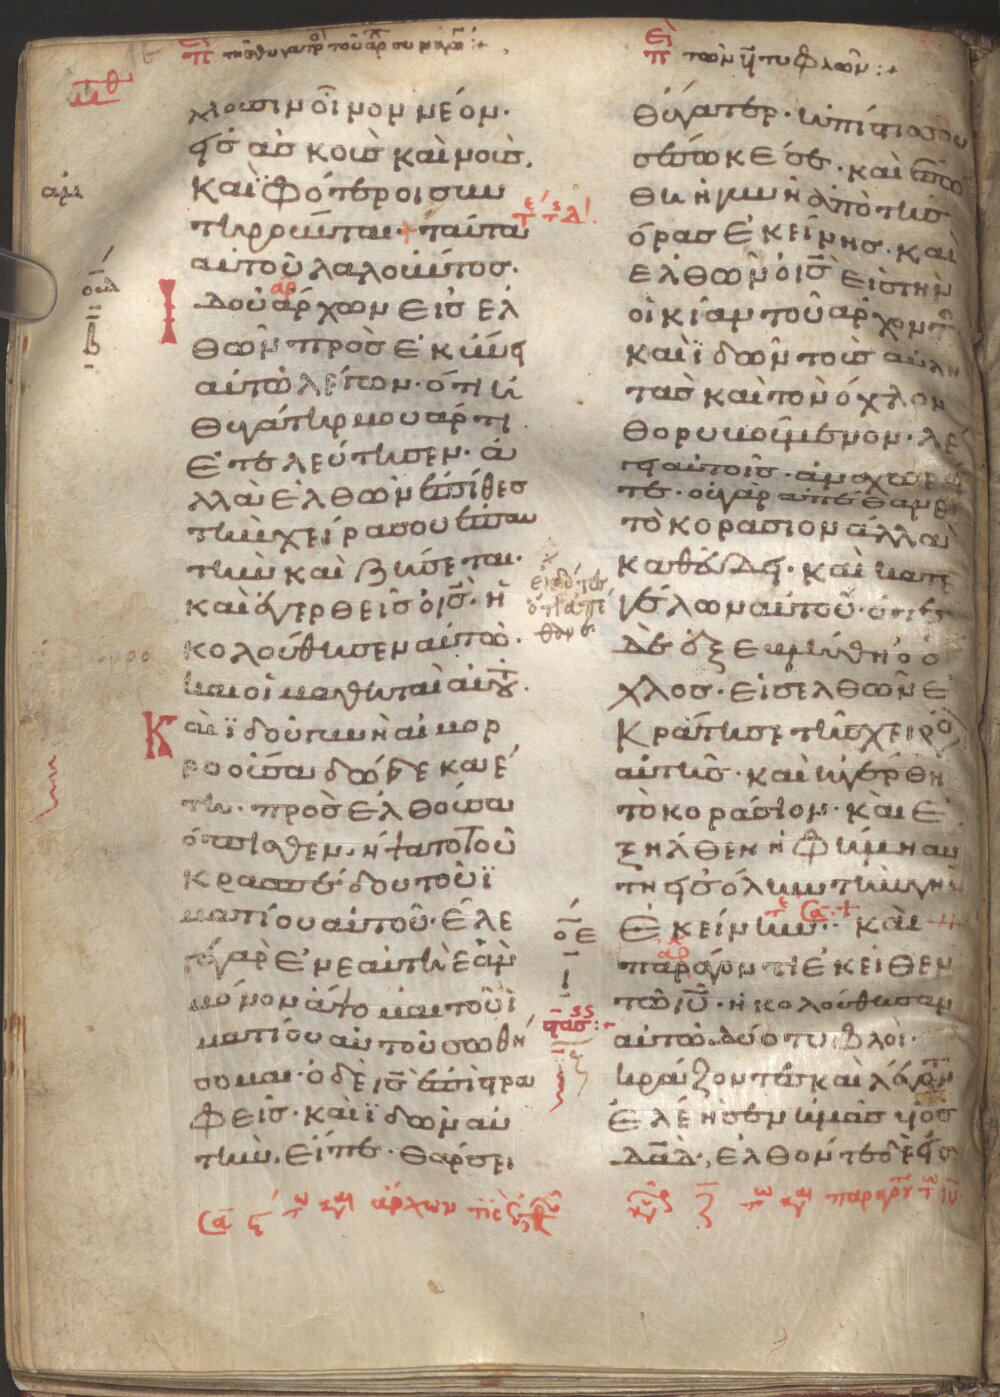 περὶ τῆς θυγατρὸς τοῦ ἀρχισυναγώγου
λλουσιν οἶνον νέον·
εἰς ἀσκοὺς καινοὺς,
καὶ ἀμφότεροι συν
τηροῦνται· + ταῦτα
αὐτοῦ λαλοῦντος·
Ἰδοὺ ἄρχων εἰσελ
θὼν προσεκύνει
αὐτῷ λέγων· ὅτι ἡ
θυγάτηρ μου ἄρτι
ἐτελεύτησεν· ἀ
λλὰ ἐλθὼν ἐπίθες
τὴν χεῖρα σου ἐπ' αὐ
τὴν καὶ ζήσεται·
καὶ ἐγερθεὶς ὁ ις· ἠ
κολούθησεν αὐτῷ·
καὶ οἱ μαθηταὶ αὐτοῦ·
Καὶ ἰδοὺ γυνὴ αἱμορ
ροοῦσα δώδεκα ἔ
τη· προσελθοῦσα
ὄπισθεν· ἥψατο τοῦ
κρασπέδου τοῦ ἱ
ματίου αὐτοῦ· ἔλε
γε γὰρ ἐν ἑαυτῇ ἐὰν
μόνον ἅψωμαι τοῦ ἱ
ματίου αὐτοῦ σωθή
σομαι· ὁ δὲ ις ἐπιστρα
φεὶς· καὶ ἰδὼν αὐ
τὴν, εἶπε· θάρσει
περὶ τῶν β τυφλῶν
θύγατερ· ἡ πίστις σου
σέσωκέ σε· καὶ ἐσώ
θη ἡ γυνὴ ἀπὸ τῆς
ὥρας ἐκείνης· καὶ
ἐλθὼν ὁ ις εἰς τὴν
οἰκίαν τοῦ ἄρχοντος
καὶ ἰδὼν τοὺς αὐλη
τὰς καὶ τὸν ὄχλον
θορυβούμενον· λέ
γει αὐτοῖς· ἀναχωρεῖ
τε· οὐ γὰρ ἀπέθανε
τὸ κοράσιον ἀλλὰ
καθεύδει· καὶ κατε
γέλων αὐτοῦ· ὅτε
δὲ ἐξεβλήθη ὁ ὄ
χλος· εἰσελθὼν ἐ
κράτησε τῆς χειρὸ
αὐτῆς· καὶ ἠγέρθη
τὸ κοράσιον· καὶ ἐ
ξῆλθεν ἡ φήμη αὕ
τη εἰς ὅλην τὴν γῆν
ἐκείνην· καὶ
παράγοντι ἐκεῖθεν
τῷ ιυ· ἠκολούθησαν
αὐτῷ δύο τυφλοὶ·
κράζοντες καὶ λέγοντ
ἐλέησον ἡμᾶς υἱὸς
δαδ, ἐλθόντι δὲ εἰς